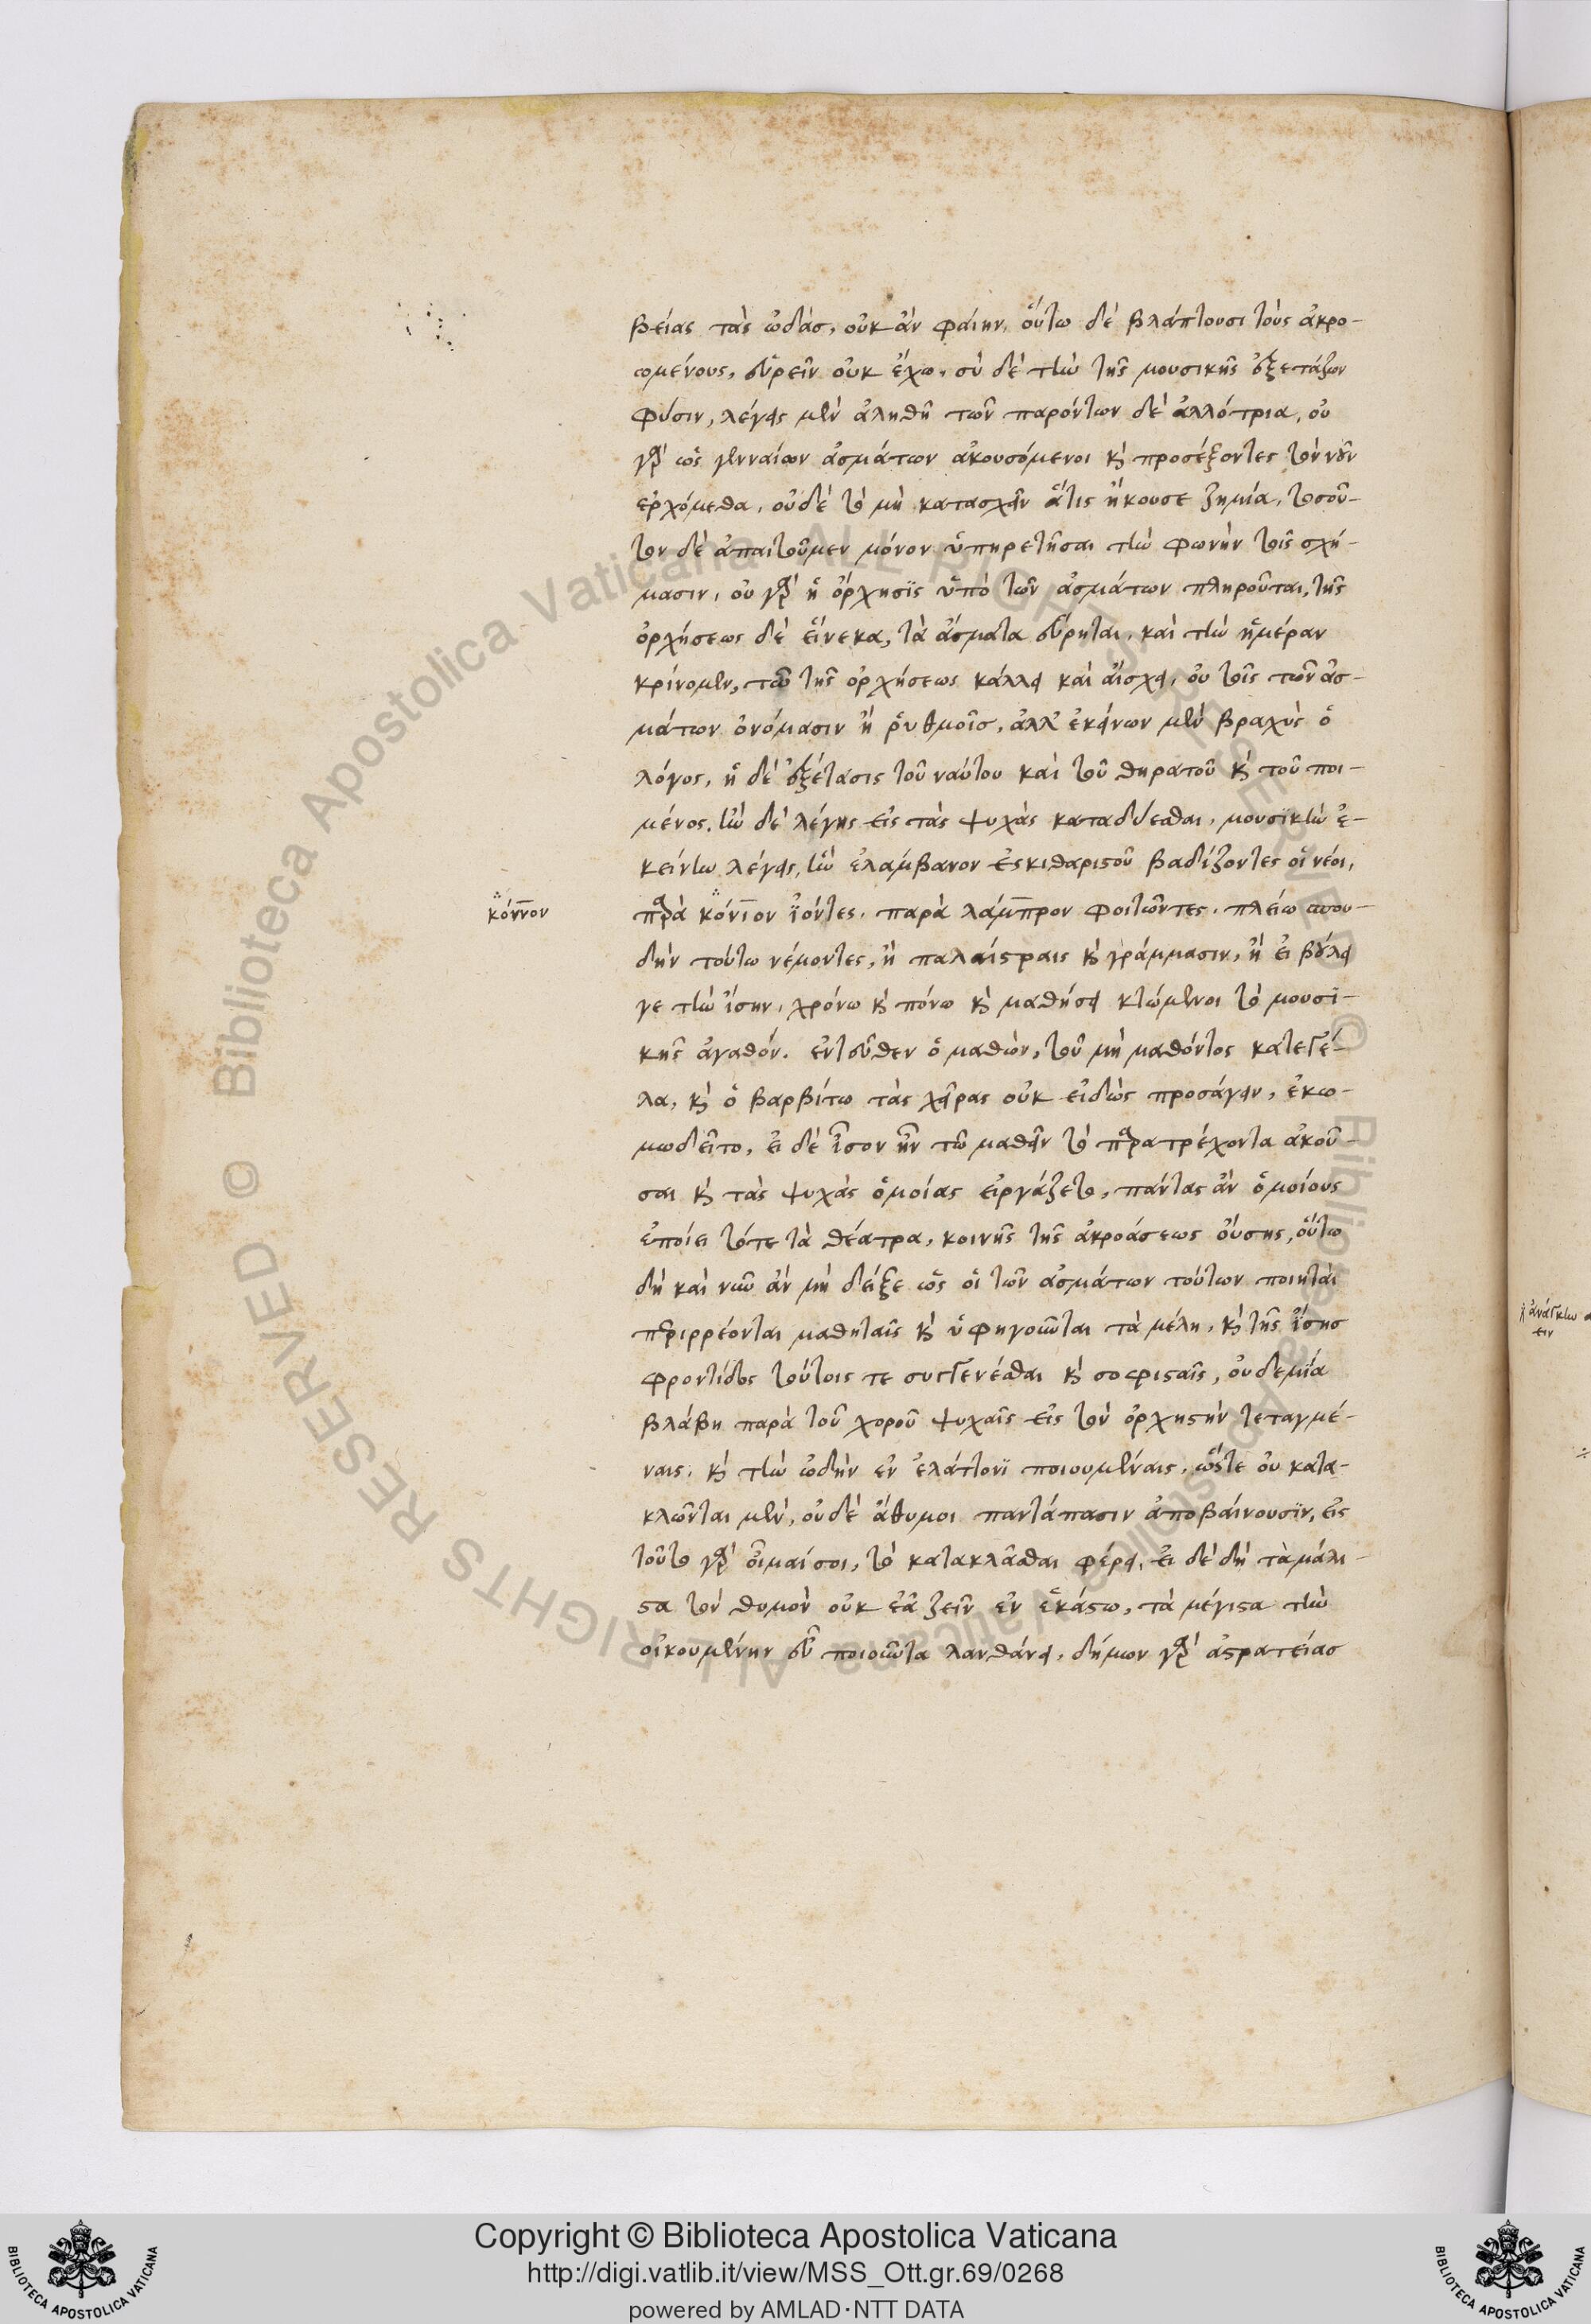 βείας τὰς ὠδὰσ, οὐκ ἂν φαίην, οὕτω δὲ βλάπτουσι τοὺς ἀκρο-
ωμένους, εὑρεῖν οὐκ ἔχω, σὺ δὲ τὴν τῆς μουσικῆς ἐξετάζων
φύσιν, λέγεις μὲν ἀληθῆ τῶν παρόντων δὲ ἀλλότρια, οὐ
γὰρ ὡς γενναίων ἀσμάτων ἀκουσόμενοι κὶ προσέξοντες τὸν νοῦν
ἐρχόμεθα, οὐδὲ τὸ μὴ κατασχεῖν ἅτις ἤκουσε ζημία, τοσοῦ-
τον δὲ ἀπαιτοῦμεν μόνον ὑπηρετῆσαι τὴν φωνὴν τοῖς σχή-
μασιν, οὐ γὰρ ἡ ὄρχησϊς ὑπὸ τῶν ἀσμάτων πληροῦται, τῆς
ὀρχήσεως δὲ εἵνεκα, τὰ ἄσματα εὕρηται, καὶ τὴν ἡμέραν
κρίνομεν, τῶ τῆς ὀρχήσεως κάλλει καὶ αἴσχει, οὐ τοῖς τῶν ἀσ-
μάτων ὀνόμασιν ἢ ῥυθμοῖσ, ἀλλ' ἐκείνων μὲν βραχὺς ὁ
λόγος, ἡ δὲ ἐξέτασις τοῦ ναύτου καὶ τοῦ θηρατοῦ κὶ τοῦ ποι-
μένος, ἣν δὲ λέγης εἰς τὰς ψυχὰς καταδύεσθαι, μουσϊκὴν ἐ-
κείνην λέγεις, ἣν ἐλάμβανον ἐς κιθαριστοῦ βαδίζοντες οἱ νέοι,
κόννον
παρὰ κόνιον ϊόντες, παρὰ λάμπρον φοιτῶντες, πλείω σπου-
δὴν τούτω νέμοντες, ἢ παλαίστραις κὶ γράμμασιν, ἢ εἰ βούλει
γε τὴν ἴσην, χρόνω κὶ πόνω κὶ μαθήσει κτώμενοι τὸ μουσϊ-
κῆς ἀγαθόν. ἐντεῦθεν ὁ μαθὼν, τοῦ μὴ μαθόντος κατεγέ-
λα, κὶ ὁ βαρβίτω τὰς χεῖρας οὐκ εἰδὼς προσάγειν, ἐκω-
μωδεῖτο, εἰ δὲ ἴσον ἦν τῶ μαθεῖν τὸ παρατρέχοντα ἀκοῦ-
σαι κὶ τὰς ψυχὰς ὁμοίας εἰργάζετο, πάντας ἂν ὁμοίους
ἐποίει τότε τὰ θέατρα, κοινῆς τῆς ἀκροάσεως οὔσης, οὕτω
δὴ καὶ νῦν ἂν μὴ δείξε ὡς οἱ τῶν ἀσμάτων τούτων ποιηταὶ
περιρρέονται μαθηταῖς κὶ ὑφηγοῦνται τὰ μέλη, κὶ τῆς ἴσησ
φροντίδος τούτοις τε συγγενέσθαι κὶ σοφισταῖς, οὐδεμϊά
βλάβη παρὰ τοῦ χοροῦ ψυχαῖς εἰς τὸν ὀρχηστὴν τεταγμέ-
ναις, κὶ τὴν ὠδὴν ἐν ἐλάττονϊ ποιουμέναις, ὥστε οὐ κατα-
κλῶνται μὲν, οὐδὲ ἄθυμοι παντάπασιν ἀποβαίνουσϊν, εἰς
τοῦτο γὰρ οἶμαί σοι, τὸ κατακλᾶσθαι φέρει, εἰ δὲ δὴ τὰ μάλι-
στα τὸν θυμὸν οὐκ ἐᾶ ζεῖν ἐν ἑκάστω, τὰ μέγιστα τὴν
οἰκουμένην εὖ ποιοῦντα λανθάνει, δήμων γὰρ ἀστρατείασ
Copyright © Biblioteca Apostolica Vaticana
http://digi.vatlib.it/view/MSS_Ott.gr.69/0268
powered by AMLAD·NTT DATA
BIBLIOTECA APOSTOLICA VATICANA
BIBLIOTECA APOSTOLICA VATICANA
© Biblioteca Apostolica Vaticana ALL RIGHTS RESERVED
© Biblioteca Apostolica Vaticana ALL RIGHTS RESERVED